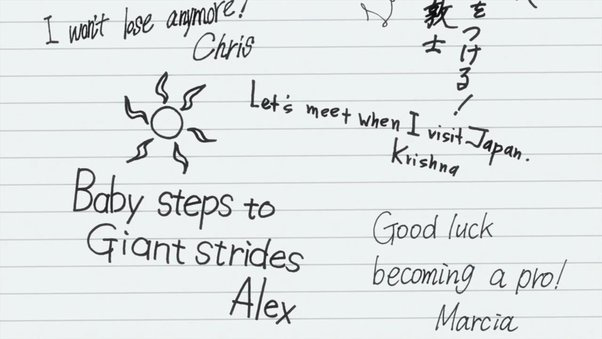 I won't lose anymore!
Chris
をつける!
敦士
Let's meet when I visit Japan.
Krishna
Baby steps to
Giant strides
Alex
Good luck
becoming a pro!
Marcia